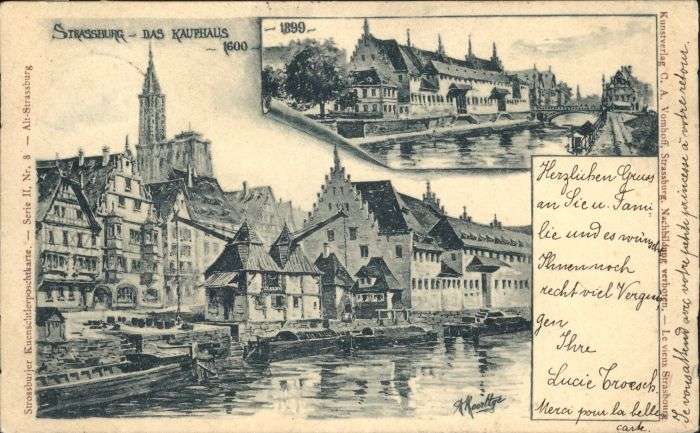 STRASSBURG - DAS KAUFHAUS
- 1600 -
- 1899 -
Strassburjer Kuenschtlerposchtkarte. - Serie II, No. 8 - Alt-Strassburg
Kunstverlag C. A. Vomhoff, Strassburg. Nachbildung verboten. - Le vieux Strasbourg
Herzlichen Gruss
an Sie u. Fami
lie und es wünscht
Ihnen noch
recht viel Vergnü
gen
Ihre
Lucie Troesch
Merci pour la belle
carte.
Je vous attend avec votre petite princesse à votre retour.